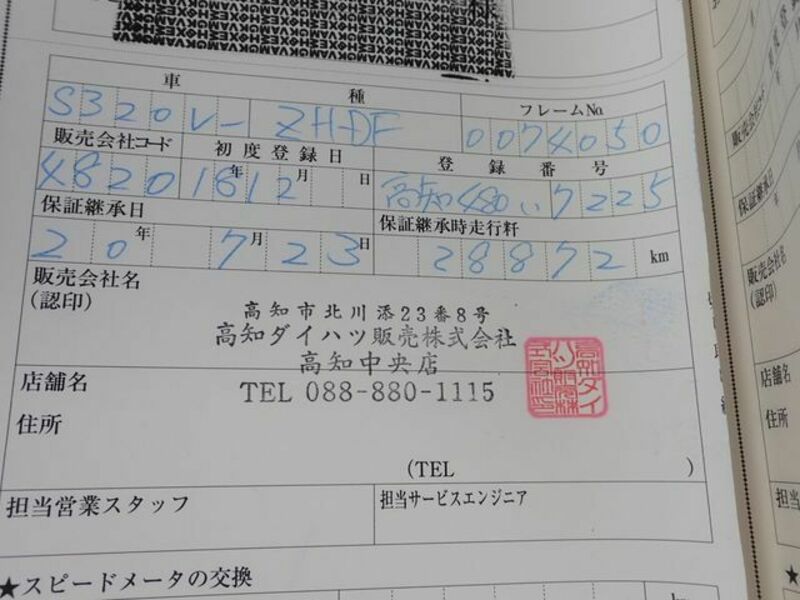 車種
フレームNo.
S320V-ZHDF
0074050
販売会社コード
初度登録日
登録番号
4820
18年12月 日
高知480い7225
保証継承日
保証継承時走行料
20年7月23日
28872 km
販売会社名
(認印)
高知市北川添23番8号
高知ダイハツ販売株式会社
高知中央店
店舗名
TEL 088-880-1115
住所
(TEL )
担当営業スタッフ
担当サービスエンジニア
★スピードメータの交換
km